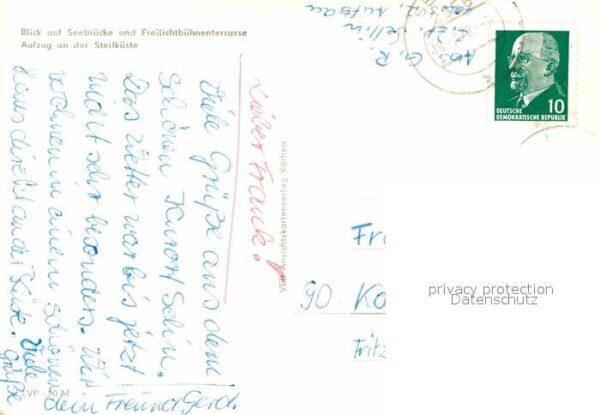 Blick auf Seebrücke und Freilichtbühnenterrasse
Aufzug an der Steilküste
Lieber Frank!
Viele Grüße aus dem
schönen Kurort Selin.
Das Wetter war bis jetzt
nicht sehr besonders. Wir
wohnen in einem schönen
Haus direkt an der Küste. Viele
Grüße
dein Freund Gerd
EVP
M
VEB Ansichtskartenverlag Köthen
Abs. G. R.
z. Zt. Sellin
DEUTSCHE
DEMOKRATISCHE REPUBLIK
10
Fr
90. Ko
Fritz
privacy protection
Datenschutz